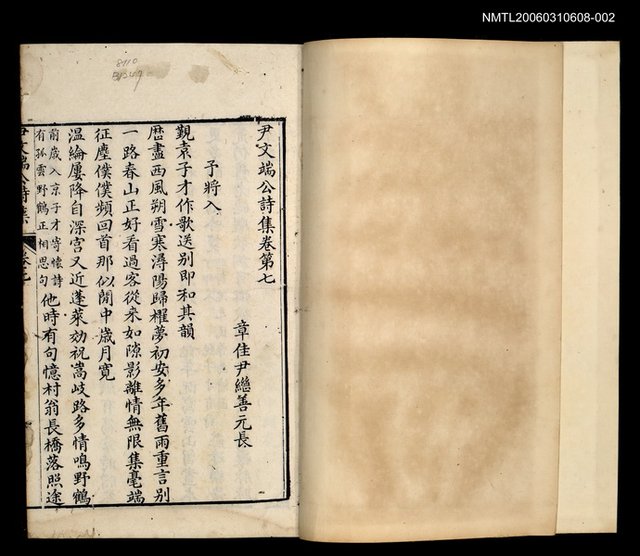 NMTL20060310608-002
尹文端公詩集卷第七
章佳尹繼善元長
予將入
覲袁子才作歌送别即和其韻
歷盡西風朔雪寒潯陽歸櫂夢初安多年舊雨重言别
一路春山正好看過客從來如隙影離情無限集毫端
征塵僕僕頻回首那似閒中歲月寬
温綸屢降自深宫又近蓬萊効祝嵩岐路多情鳴野鶴
前歲入京子才寄懷詩
有孤雲野鶴正相思句
他時有句憶村翁長橋落照途
尹文端公詩集
卷七